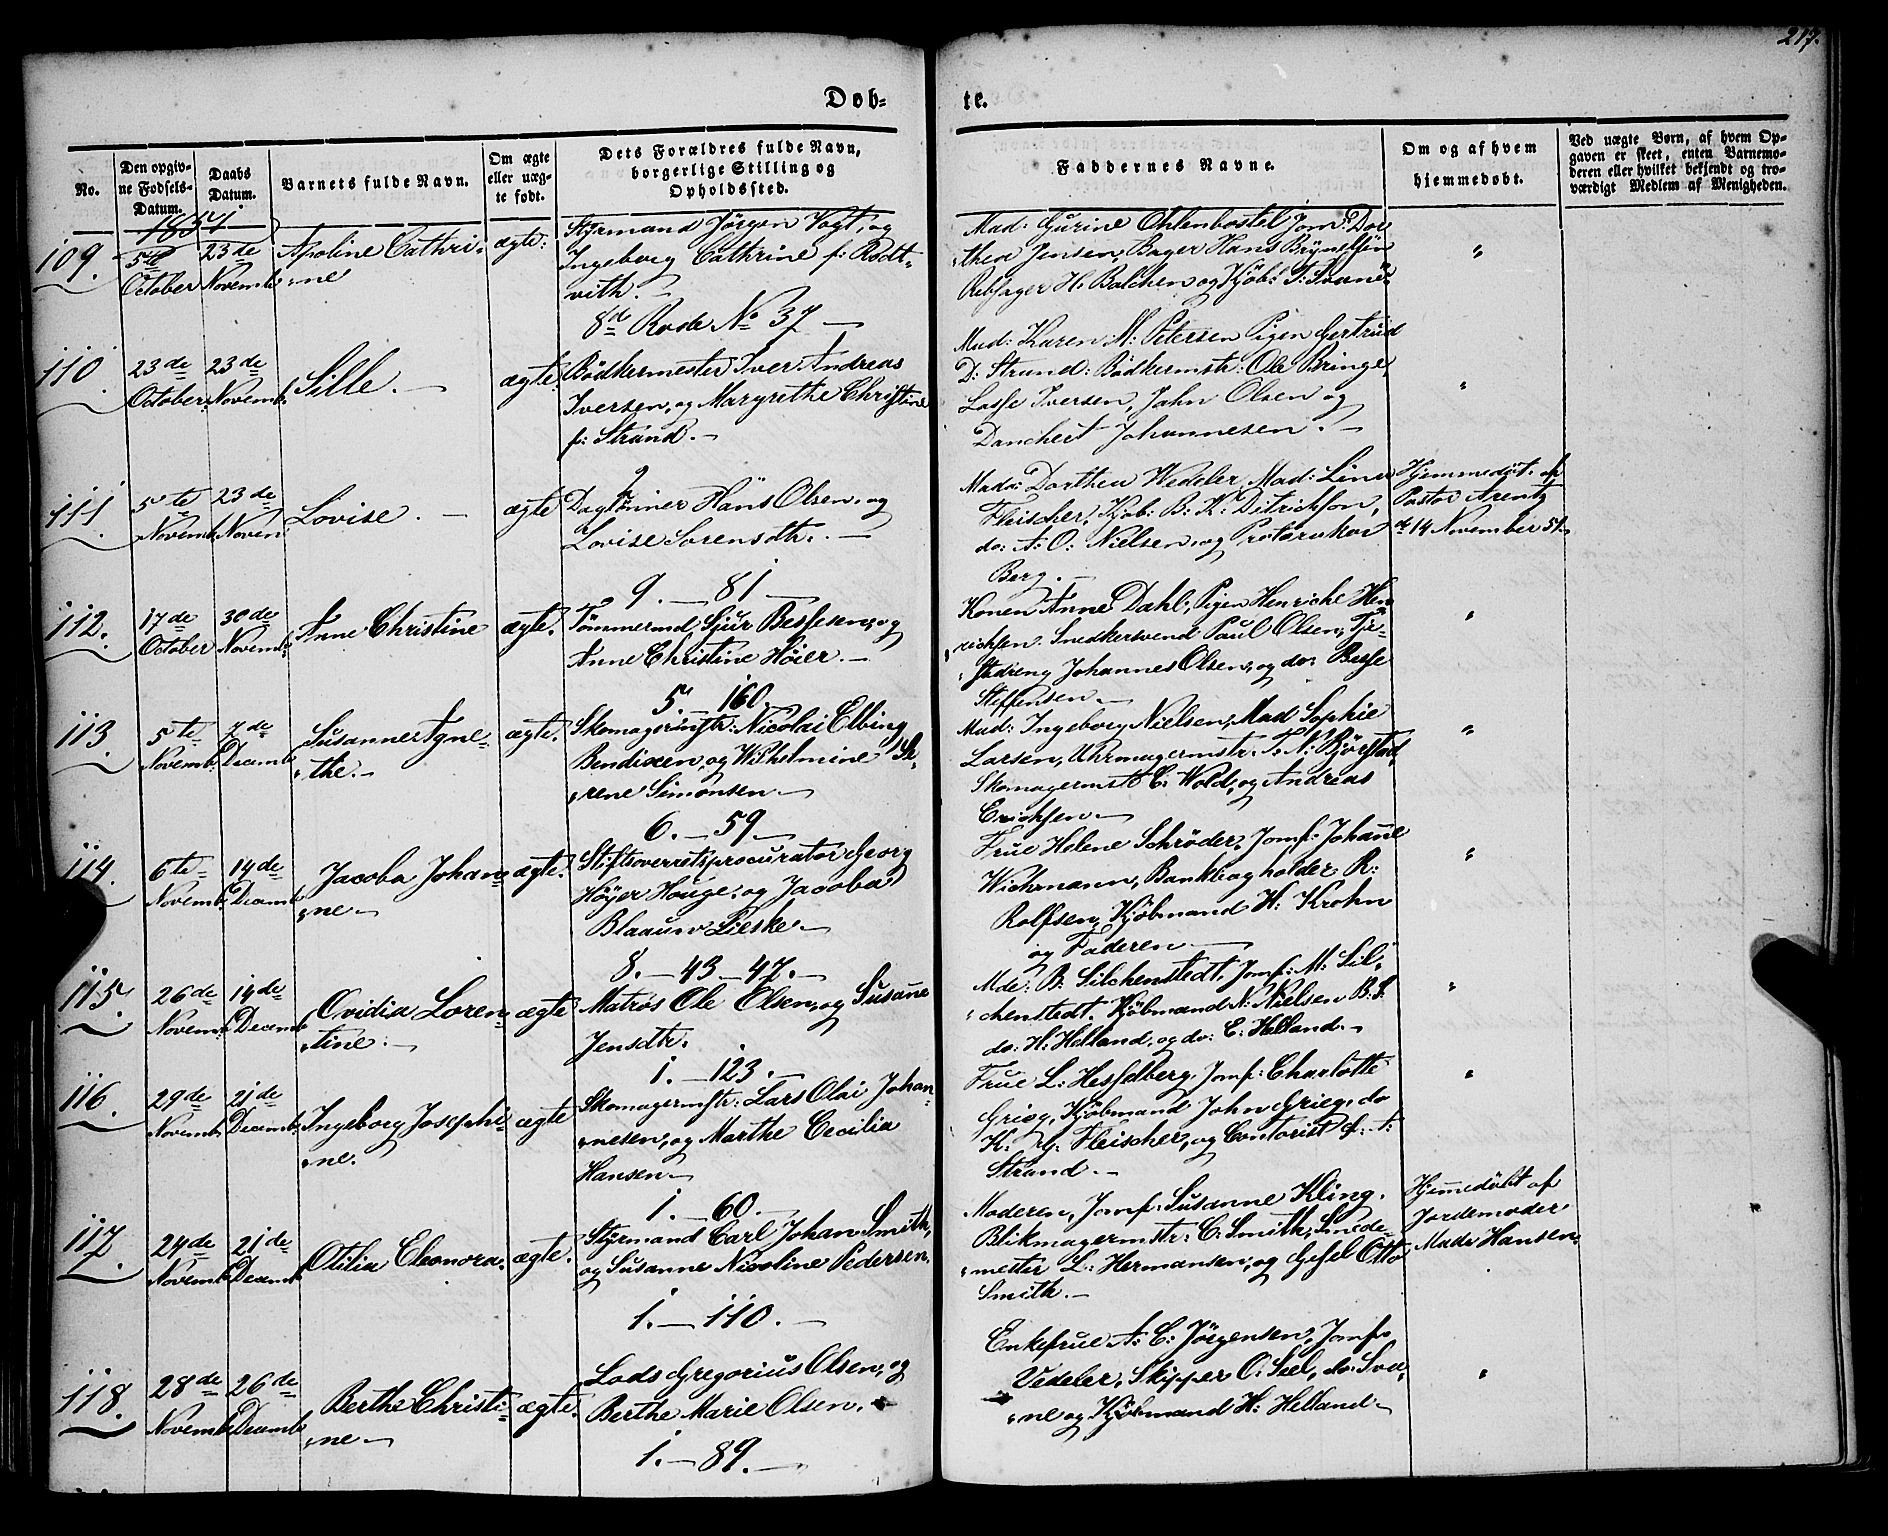 217.
Døb-
te.
No.
Den opgiv-
ne Fødsels-
Datum.
Daabs
Datum.
Barnets fulde Navn.
Om ægte
eller uæg-
te født.
Dets Forældres fulde Navn,
borgerlige Stilling og
Opholdssted.
Faddernes Navne.
Om og af hvem
hjemmedøbt.
Ved uægte Børn, af hvem Op-
gaven er skeet, enten Barnemo-
deren eller hvilket bekjendt og tro-
værdigt Medlem af Menigheden.
1854
109.
5te
October
23de
Novemb:
Apoline Cathri-
ne
ægte:
Styrmand Jørgen Vogt, og
Ingeborg Cathrine f: Rödt-
vith.
8de Rode No 37
Mad: Gurine Ohlenbostel Jomf: Dor-
thea Jensen, Bager Hans Brynelsen
Rebslager H. Balchen og Kjøb:
"
110.
23de
October
23de
Novemb:
Sille.
ægte
Bødkermester Iver Andreas
Iversen, og Margrethe Christine
f: Strand.
Mad: Karen M: Petersen Pigen Gertrud
D: Strand: Bødkermstr: Ole Bringe,
Lasse Iversen, John Olsen og
Danchert Johannesen.
"
111.
5te
Novemb:
23de
Novem:
Lovise.
ægte
Daglønner Hans Olsen, og
Lovise Sørensdtr.
9. — 81
Mada: Dorthea Wedeler, Mad: Line
Fleischer, Kjøb: B: K: Ditrichson,
do: A: O: Nielsen, og
Berg.
Hjemmedøbt af
Pastor Arentz
d: 14 November 54.
112.
17de
October
30de
Novemb:
Anne Christine
ægte.
Tømmermd Sjur Bessesen, og
Anne Christine Høier.
5. — 160.
Konen Anne Dahl, Pigen Henriche Hen-
richsen. Snedkersvend Paul Olsen, Tje-
stdreng Johannes Olsen, og do: Besse
Steffensen.
"
113.
5te
Novemb:
7de
Decemb
Susanne Agne-
the.
ægte.
Skomagermstr: Nicolai Elbing
Bendixen, og Wilhelmine Se-
rene Simonsen
6. — 59
Mad: Ingeborg Nielsen, Mad Sophie
Larsen, Uhrmagermstr: T: N: Bjørstad,
Skomagermstr C: Wold, og Andreas
Erichsen.
"
114.
6te
Novemb:
14de
Decemb
Jacoba Johan-
ne
ægte.
Stiftsoverretsprocurator Georg
Høyer Houge, og Jacoba
Blaauw Lieske.
8. — 43 — 47.
Frue Helene Schrøder, Jomf: Johanne
Wichmann, Bankbogholder R:
Rolfsen, Kjøbmand H: Krohn
og Faderen
"
115.
26de
Novemb:
14de
Decemb
Ovidia Loren-
tine.
ægte
Matros Ole Olsen, og Susanne
Jensdtr.
1. — 123.
Mde: B: Silchenstedt, Jomf: M: Sil-
chenstedt. Kjøbmand N: Nielsen B. S.
do: H: Helland, og do: C: Helland.
"
116.
29de
Novemb:
21de
Decemb:
Ingeborg Josephi-
ne.
ægte
Skomagermstr: Lars Olai Johan-
nesen, og Marthe Cecilia
Hansen.
1. — 60.
Frue L: Hesselberg, Jomf: Charlotte
Grieg, Kjøbmand John Grieg, do
K: G: Fleischer, og Contorist C: A:
Strand.
"
117.
24de
Novemb
21de
Decemb
Otilia Eleonora.
ægte.
Styrmand Carl Johan Smith,
og Susanne Nicoline Pedersen.
1. — 110.
Moderen, Jomf: Susanne Kling,
Blikmagermstr: C: Smith, Smede-
mester L: Hermansen, og Gesel Otto
Smith.
Hjemmedøbt af
Jordemoder
Mada Hansen.
118.
28de
Novemb
26de
Decemb
Berthe Christi-
ne
ægte.
Lods Gregorius Olsen, og
Berthe Marie Olsen.
1. — 89.
Enkefrue A: C: Jørgensen, Jomf:
Vedeler, Skipper O: Seel, do: Sva-
ne og Kjøbmand H: Helland.
"